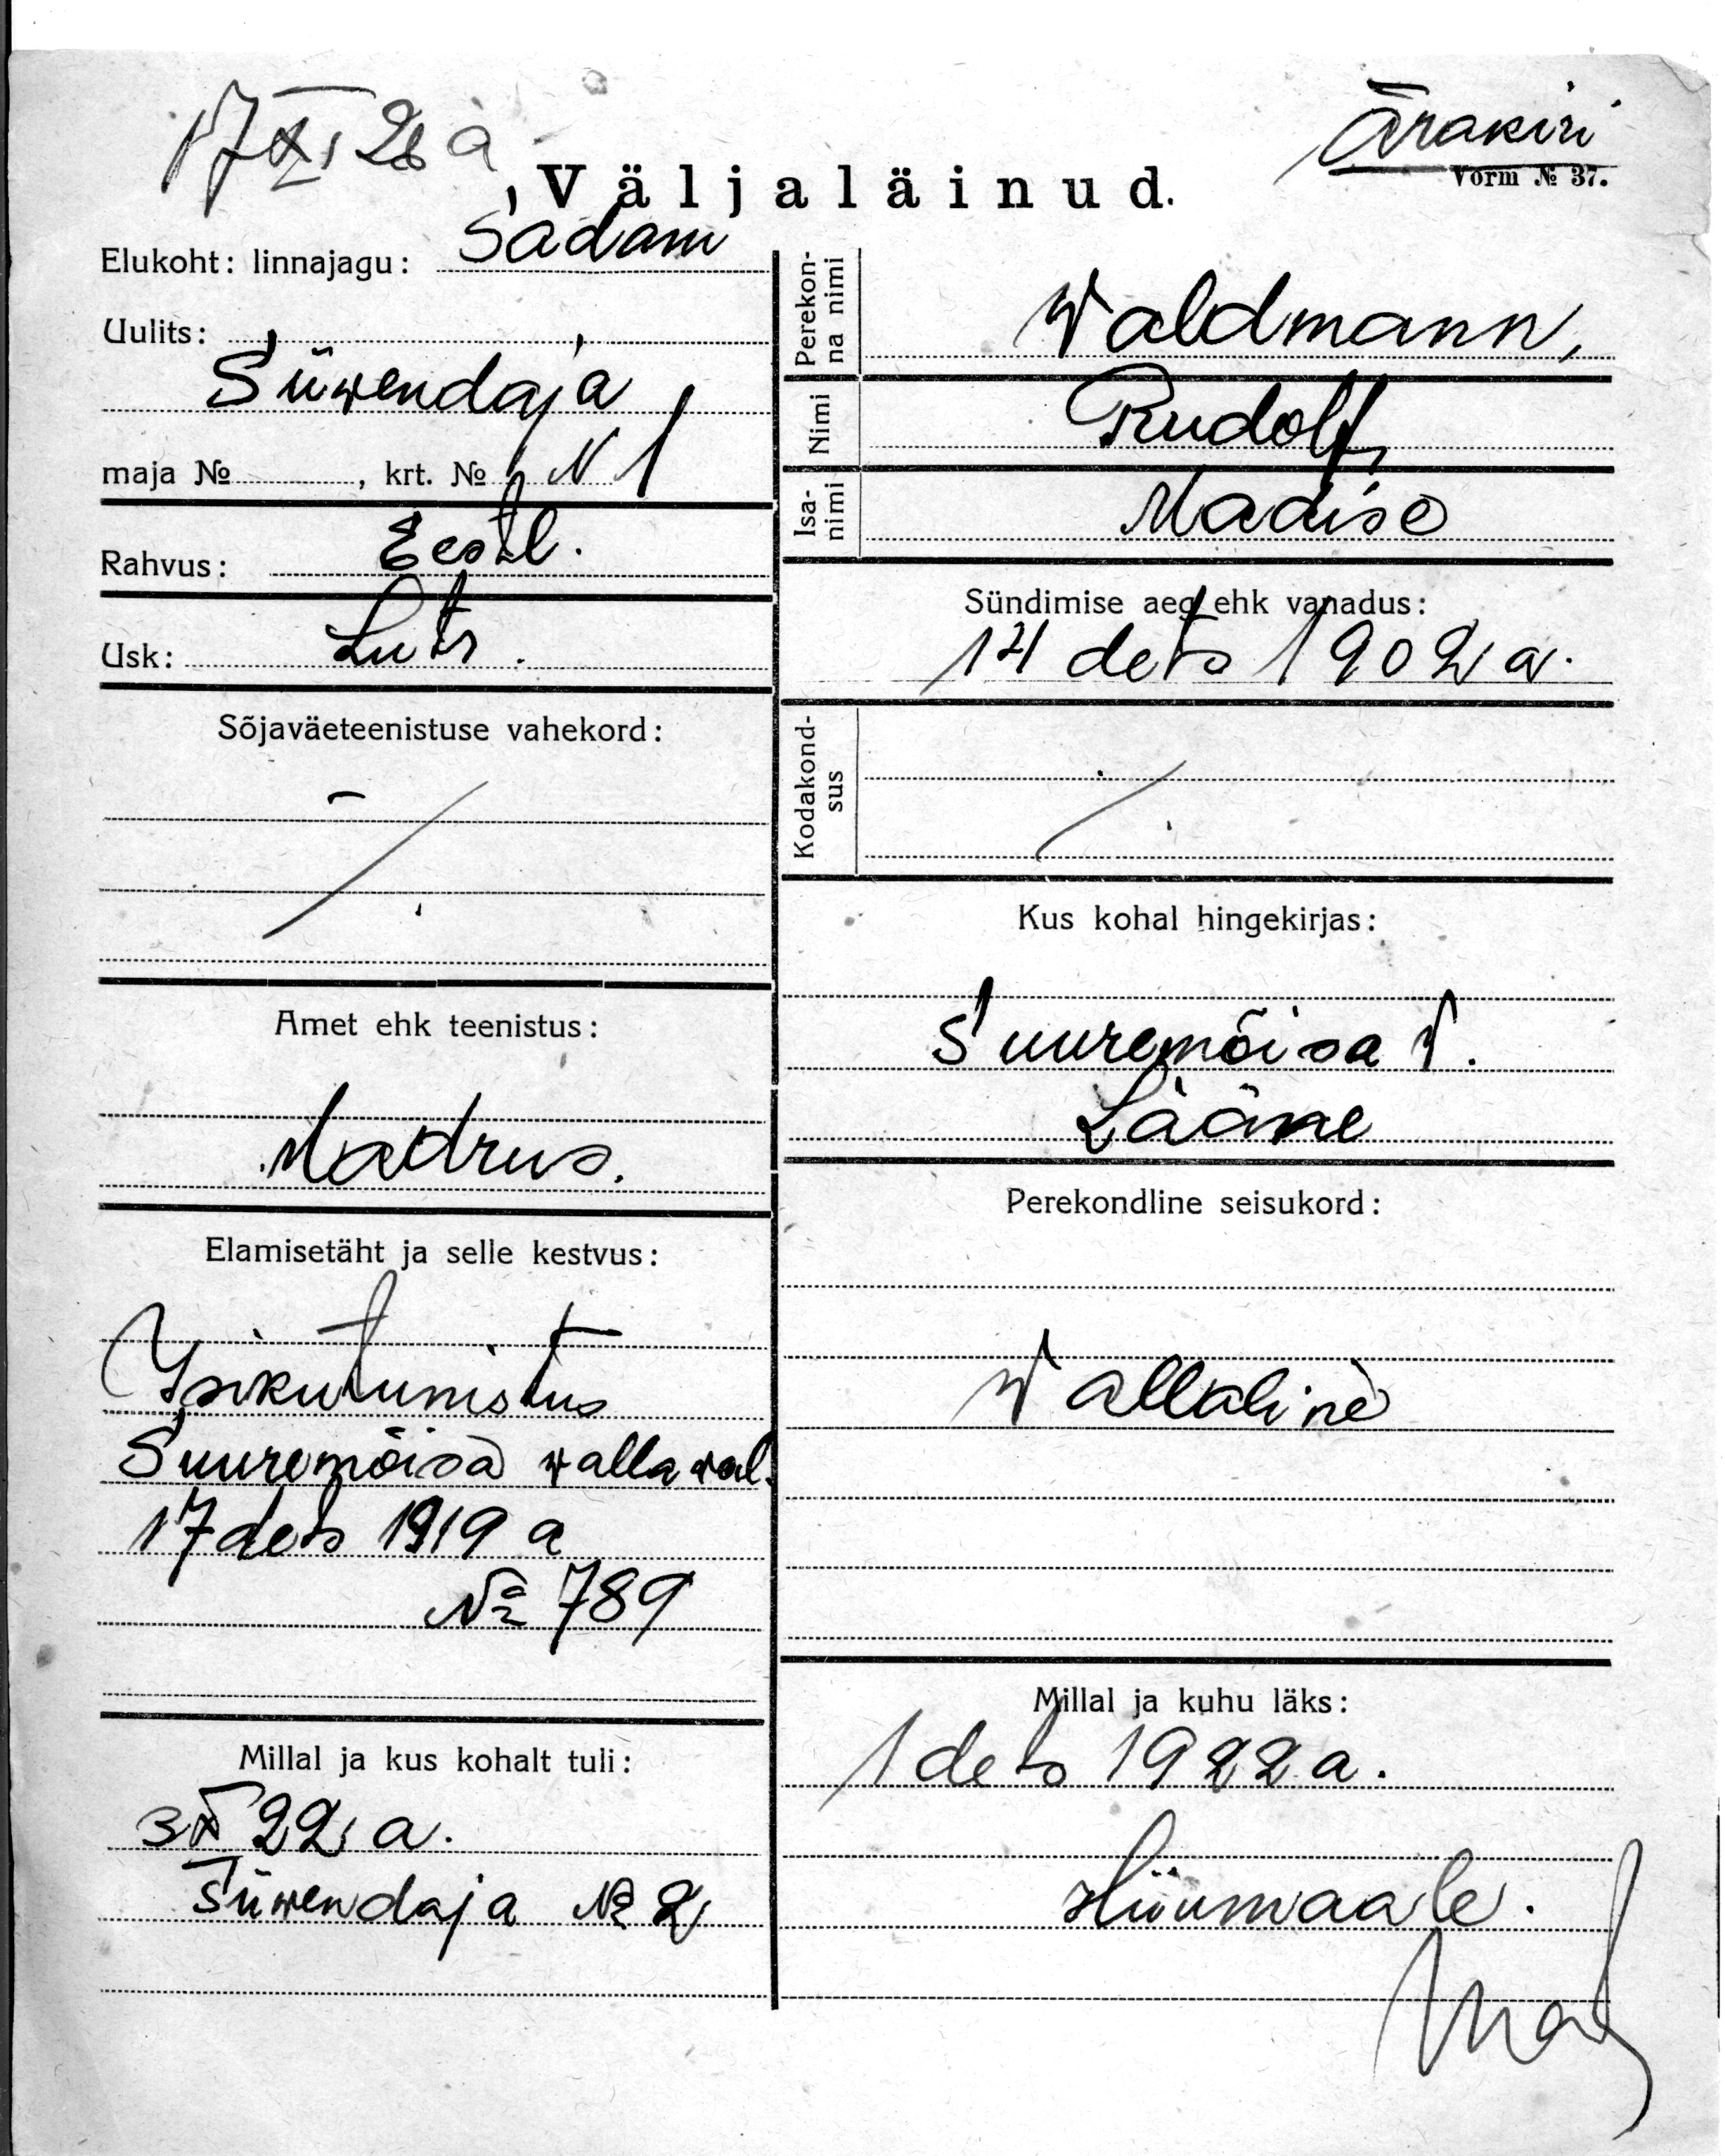 17 XI 26 a
Ärakiri
Vorm № 37.
Väljaläinud.
Elukoht: linnajagu: Sadam
Uulits:
Süwendaja
maja № , krt. № N 1
Rahvus: Eestl.
Usk: Luts.
Sõjaväeteenistuse vahekord:
Amet ehk teenistus:
Madrus.
Elamisetäht ja selle kestvus:
Isikutunistus
Suuremõisa wallawal.
17 dets 1919 a
№ 789
Millal ja kus kohalt tuli:
3 X 22 a.
Süwendaja № 2
Perekon-
na nimi
Waldmann,
Nimi
Rudolf,
Isa-
nimi
Madise
Sündimise aeg ehk vanadus:
14 dets 1902 a.
Kodakond-
sus
Kus kohal hingekirjas:
Suuremõisa W.
Lääne
Perekondline seisukord:
Wallaline
Millal ja kuhu läks:
1 dets 1922 a.
Hiiumaale.